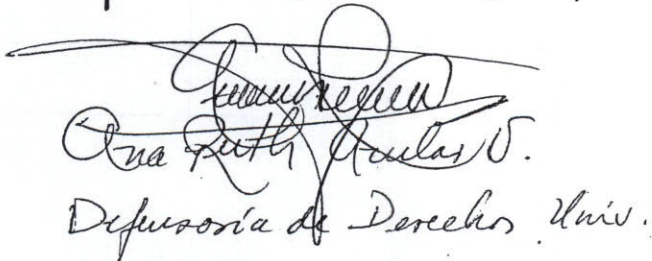 Ana Ruth Aguilar V.
Defensoría de Derechos Univ.